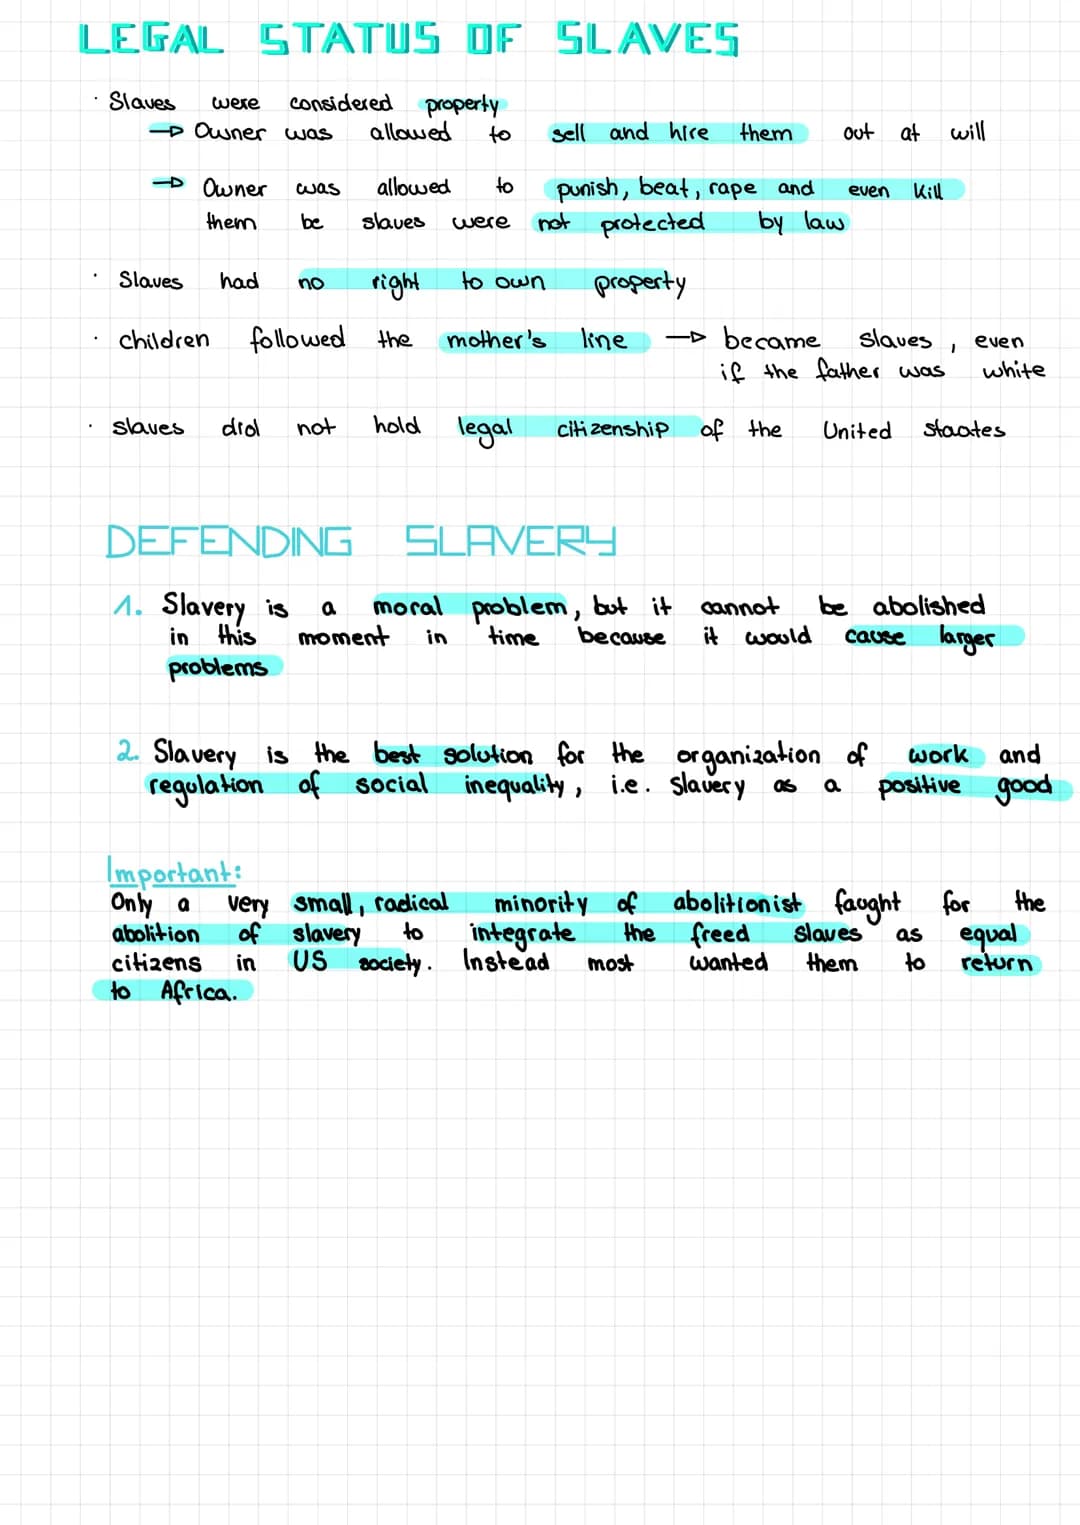 LEGAL STATUS OF SLAVES
· Slaves were considered property
→ Owner was allowed to sell and hire them out at will
→ Owner was allowed to punish, beat, rape and even kill
them be slaves were not protected by law
· Slaves had no right to own property
· children followed the mother's line → became slaves, even
if the father was white
· slaves did not hold legal citizenship of the United Staates
DEFENDING SLAVERY
1. Slavery is a moral problem, but it cannot be abolished
in this moment in time because it would cause larger
problems
2. Slavery is the best solution for the organization of work and
regulation of social inequality, i.e. Slavery as a positive good
Important:
Only a very small, radical minority of abolitionist faught for the
abolition of slavery to integrate the freed slaves as equal
citizens in US society. Instead most wanted them to return
to Africa.